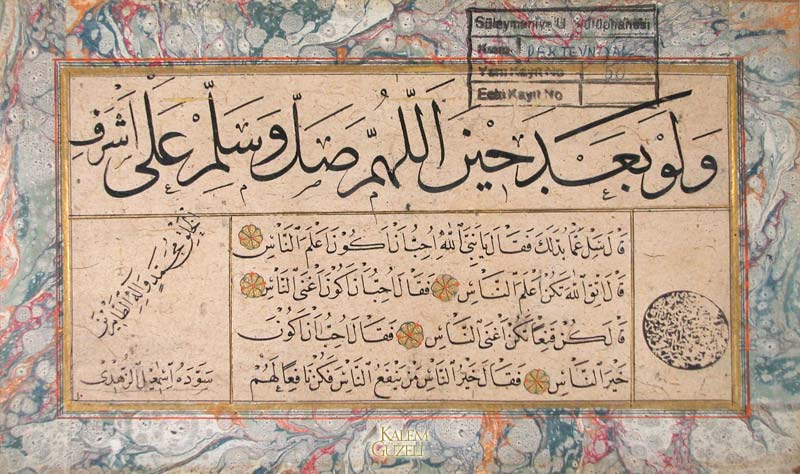 Süleymaniye U. Kütüphanesi
Yeni Kayıt No
Eski Kayıt No
وَلَوْ بَعْدَ حِينٍ اَللّٰهُمَّ صَلِّ وَسَلِّمْ عَلٰى اَشْرَفِ
قال سل عما بدلك فقال يا نبي الله احب ان اكون اعلم الناس
قال اتق الله تكن اعلم الناس فقال احب ان اكون اغنى الناس
قال كن قنعا تكن اغنى الناس فقال احب ان اكون
خير الناس فقال خير الناس من ينفع الناس فكن نافعا لهم
محمد واله الطاهرين
سوده اسمعيل الزهدى
KALEM
GÜZELİ